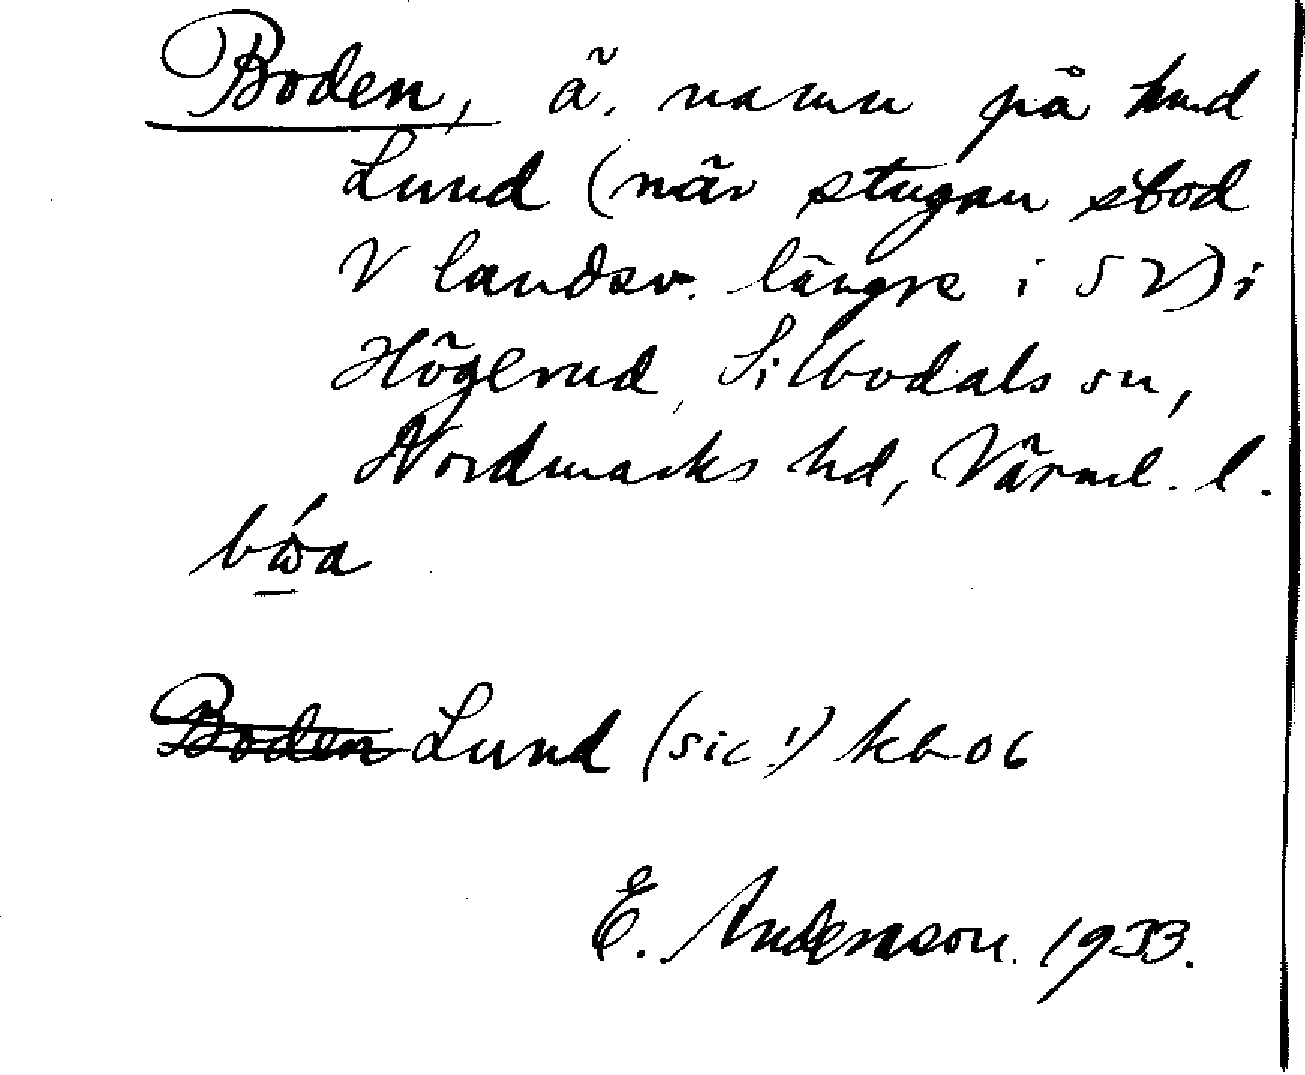 Boden, ä. namn på hmd
Lund (när stugan stod
V landsv. längre i SV) i
Högerud, Silbodals sn,
Nordmarks hd, Värml. l.
Lund (sic!) kb 06
E. Andersson. 1933.